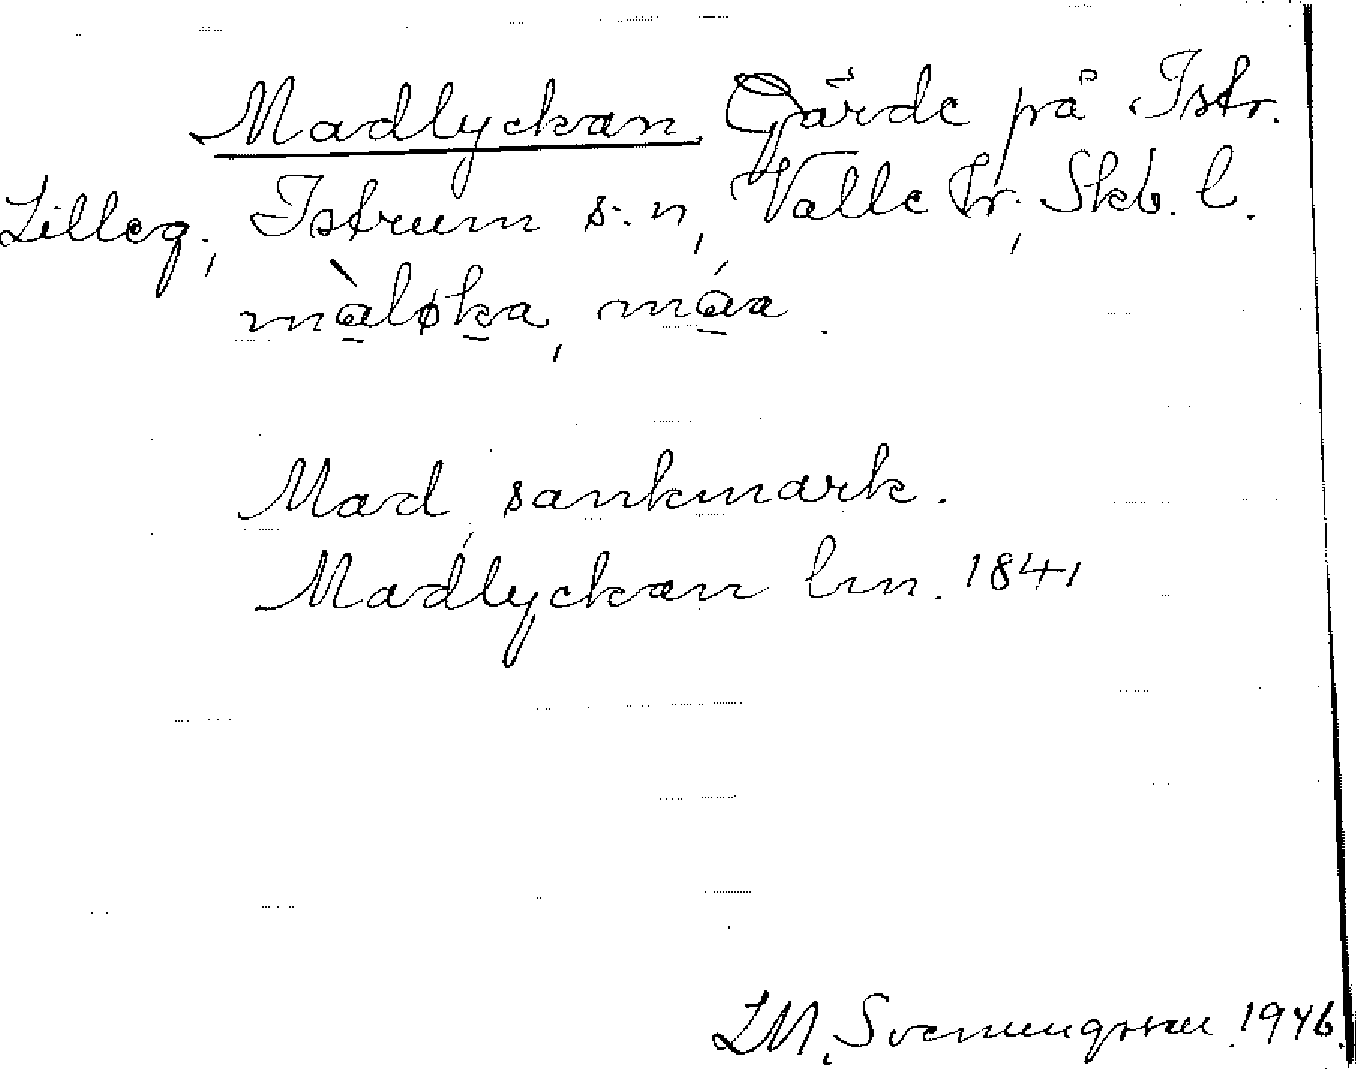 Madlyckan. Gärde på Istr.
Lilleg., Istrum s:n, Valle hr, Skb. l.
màløka, máa.
Mad, sankmark.
Madlyckan hm. 1841
LM. Svenungsson. 1946.